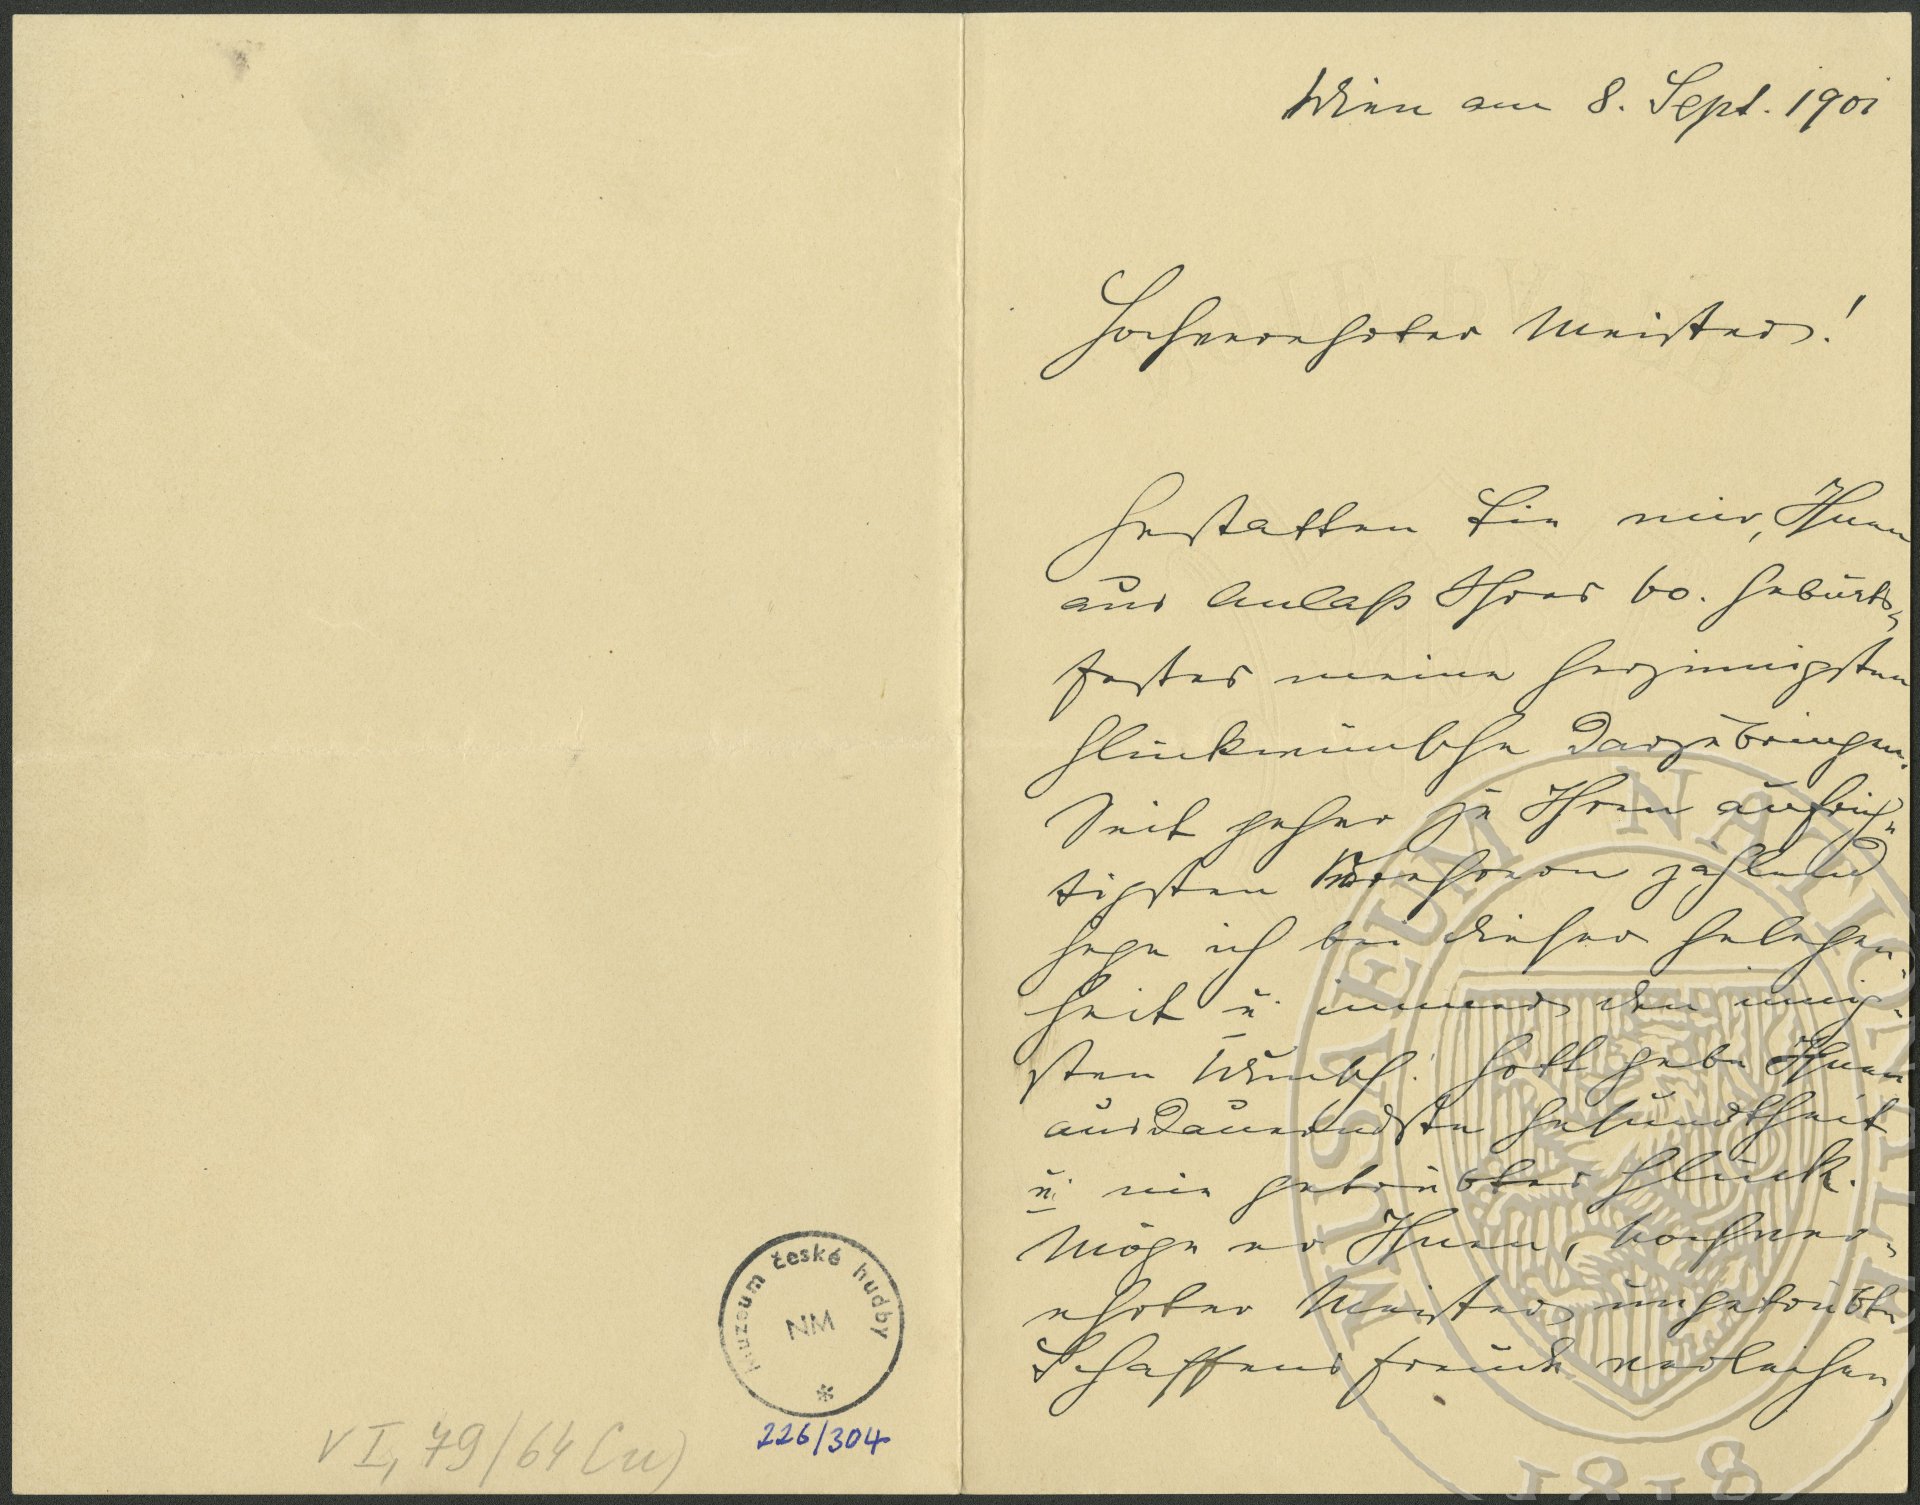 Wien am 8. Sept. 1901
Hochverehrter Meister!
Gestatten Sie mir, Ihnen
aus Anlaß Ihres 60. Geburts-
festes meine herzinnigsten
Glückwünsche darzubringen.
Seit jeher zu Ihren aufrich-
tigsten Verehrern zählend
hege ich bei dieser Gelegen-
heit u. immer den innig-
sten Wunsch: Gott gebe Ihnen
ausdauerndste Gesundtheit
u. nie getrübtes Glück.
Möge er Ihnen, hochver-
ehrter Meister, ungetrübte
Schaffensfreude verleihen,
muzeum české hudby
NM
226/304
VI, 79/64 (u)
MUSAEUM NATIONALE
1818